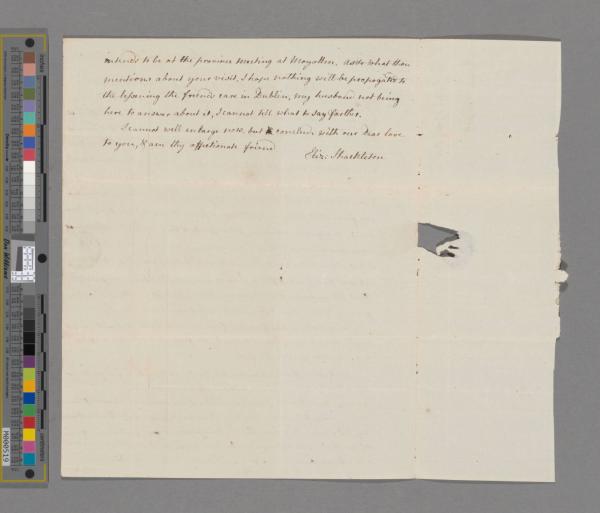 intends to be at the province meeting at Moyallen. as to what thou
mentions about your visit, I hope nothing will be propagated to
the lessening the friends care in Dublin, my husband not being
here to answer about it, I cannot tell what to say farther.
I cannot well enlarge now, but conclude with our dear love
to you, & am thy affectionate friend
Eliz: Shackleton
Don Williams
M000519